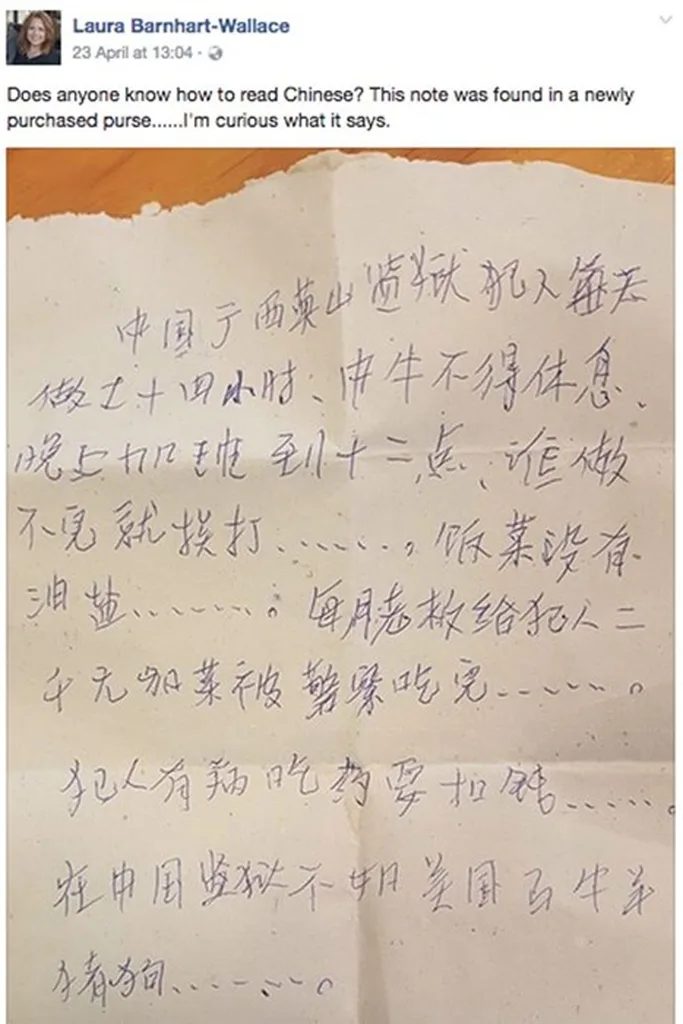 Laura Barnhart-Wallace
23 April at 13:04 ·
Does anyone know how to read Chinese? This note was found in a newly
purchased purse......I'm curious what it says.
中国广西英山监狱犯人每天
做工十四小时、中午不得休息、
晚上加班到十二点、谁做
不完就挨打.......。饭菜没有
油盐.......。每月老板给犯人二
千元加菜被警察吃完......。
犯人有病吃药要扣钱.....。
在中国监狱不如美国马牛羊
猪狗......。